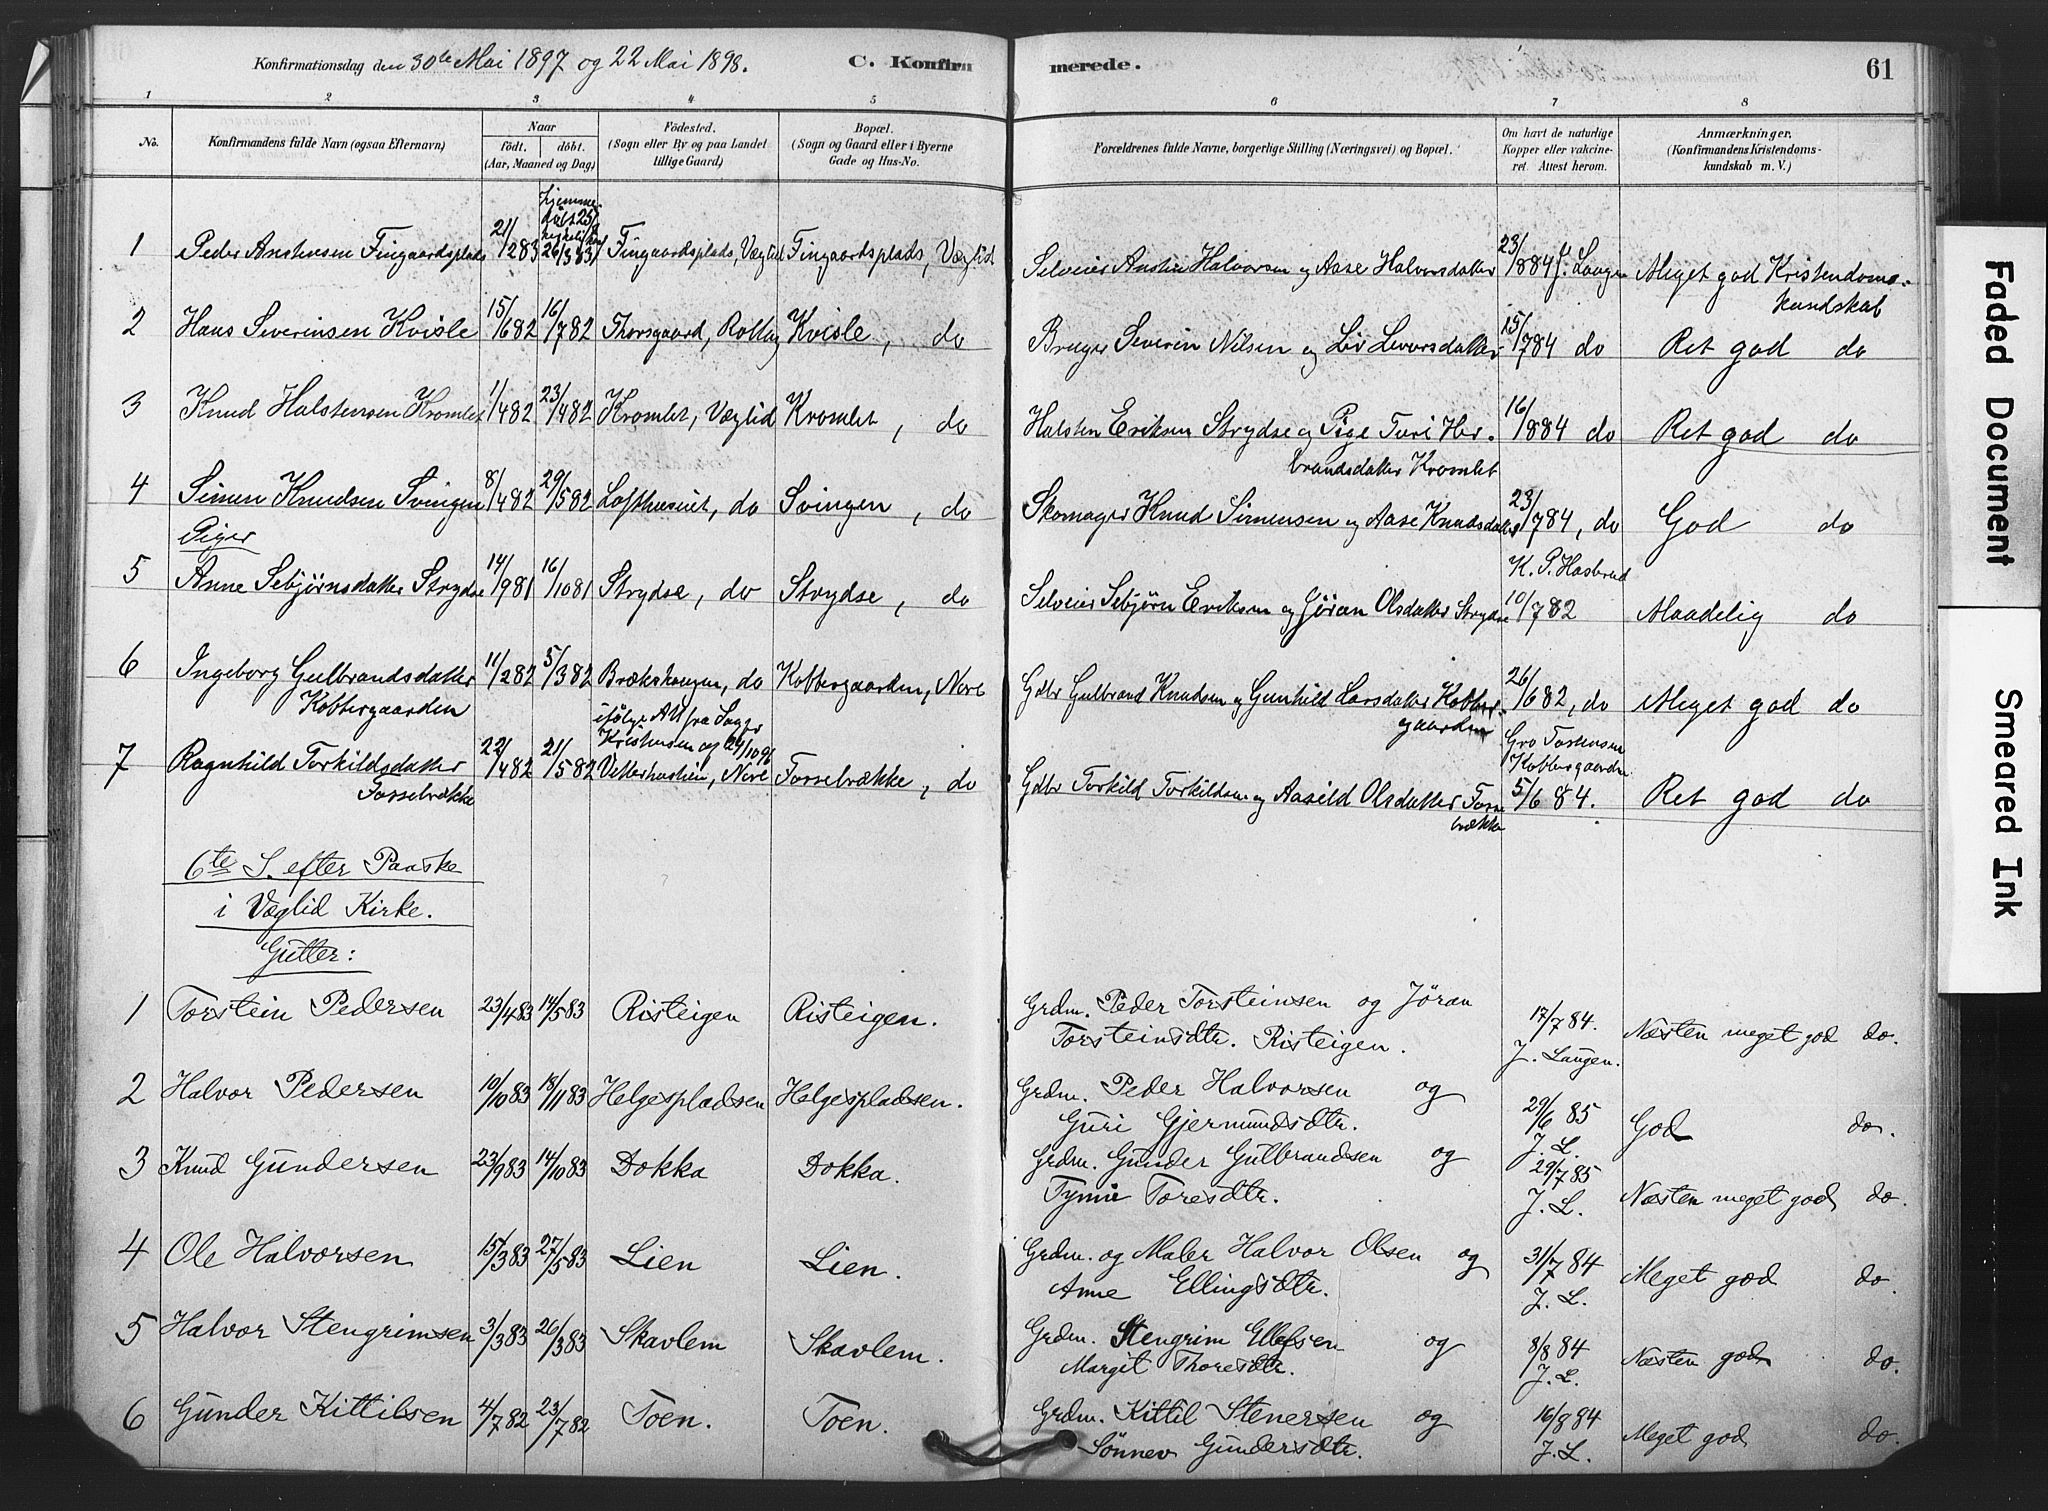 Konfirmationsdag den 30te Mai 1897 og 22 Mai 1898. C. Konfirmerede. 61
1 2 3 4 5 6 7 8
No. Konfirmandens fulde Navn (ogsaa Efternavn) Naar födt. döbt. (Aar, Maaned og Dag) Födested. (Sogn eller By og paa Landet tillige Gaard) Bopæl. (Sogn og Gaard eller i Byerne Gade og Hus-No. Forældrenes fulde Navne, borgerlige Stilling (Næringsvei) og Bopæl. Om havt de naturlige Kopper eller vaccineret. Attest herom. Anmærkninger. (Konfirmandens Kristendomskundskab m. V.)
hjemmedöbt 25/2
1 Peder Anstensen Fingaardsplads 21/2 83 26/3 83 Fingaardsplads, Væglid Fingaardsplads, Væglid Selveier Austen Halvorsen og Aase Halvorsdatter 23/8 84 J. Laugen Meget god Kristendomskundskab
2 Hans Severinsen Kvisle 15/6 82 16/7 82 Thorsgaard, Rollag Kvisle, do Bruger Severin Nilsen og Liv Levorsdatter 15/7 84 do Ret god do
3 Knud Halstensen Kromlet 1/4 82 23/4 82 Kromlet, Væglid Kromlet, do Halsten Eriksen Strydse og Pige Turi Herbrandsdatter Kromlet 16/8 84 do Ret god do
4 Simen Knudsen Svingen 8/4 82 29/5 82 Lofthusiet, do Svingen, do Skomager Knud Simensen og Aase Knudsdatter 23/7 84, do God do
Piger
5 Anne Sebjørnsdatter Strydse 14/9 81 16/10 81 Strydse, do Strydse, do Selveier Sebjørn Eriksen og Jöran Olsdatter Strydse K. P. Hasbrud 10/7 82 Maadelig do
6 Ingeborg Gulbrandsdatter Kobbergaarden 11/2 82 5/3 82 Brækshaugen, do Kobbergaarden, Nore Gdbr Gulbrand Knudsen og Gunhild Larsdatter Kobbergaarden 26/6 82, do Meget god do
ifölge Att fra Sager Kristensen af 24/10 96
7 Ragnhild Torkildsdatter Fossebrække 22/4 82 21/5 82 Vetterhusien, Nore Fossebrække, do Gdbr Torkild Torkildsen og Aasild Olsdatter Fossebrække Gro Torstensen Kobbergaarden 5/6 84. Ret god do
6te S. efter Paaske
i Væglid Kirke.
Gutter:
1 Torstein Pedersen 23/4 83 14/5 83 Risteigen Risteigen. Grdm. Peder Torsteinsen og Jöran Torsteinsdtr. Risteigen. 17/7 84. J. Laugen. Næsten meget god do.
2 Halvor Pedersen 10/10 83 18/11 83 Helgespladsen Helgespladsen. Grdm. Peder Halvorsen og Guri Gjermundsdtr. 29/6 85 J. L. God do.
3 Knud Gundersen 23/9 83 14/10 83 Dokka Dokka. Grdm. Gunder Gulbrandsen og Tynne Toresdtr. 29/7 85 J. L. Næsten meget god do.
4 Ole Halvorsen 15/3 83 27/5 83 Lien Lien. Grdm. og Maler Halvor Olsen og Anne Ellingsdtr. 31/7 84 J. L. Meget god do.
5 Halvor Stengrimsen 3/3 83 26/3 83 Skavlem Skavlem. Grdm. Stengrim Ellefsen og Margit Thoresdtr. 8/8 84 J. L. Næsten god do.
6 Gunder Kittilsen 4/7 82 23/7 82 Toen. Toen. Grdm. Kittil Stenersen og Sönnev Gundersdtr. 16/8 84 J. L. Meget god do.
Faded Document
Smeared Ink